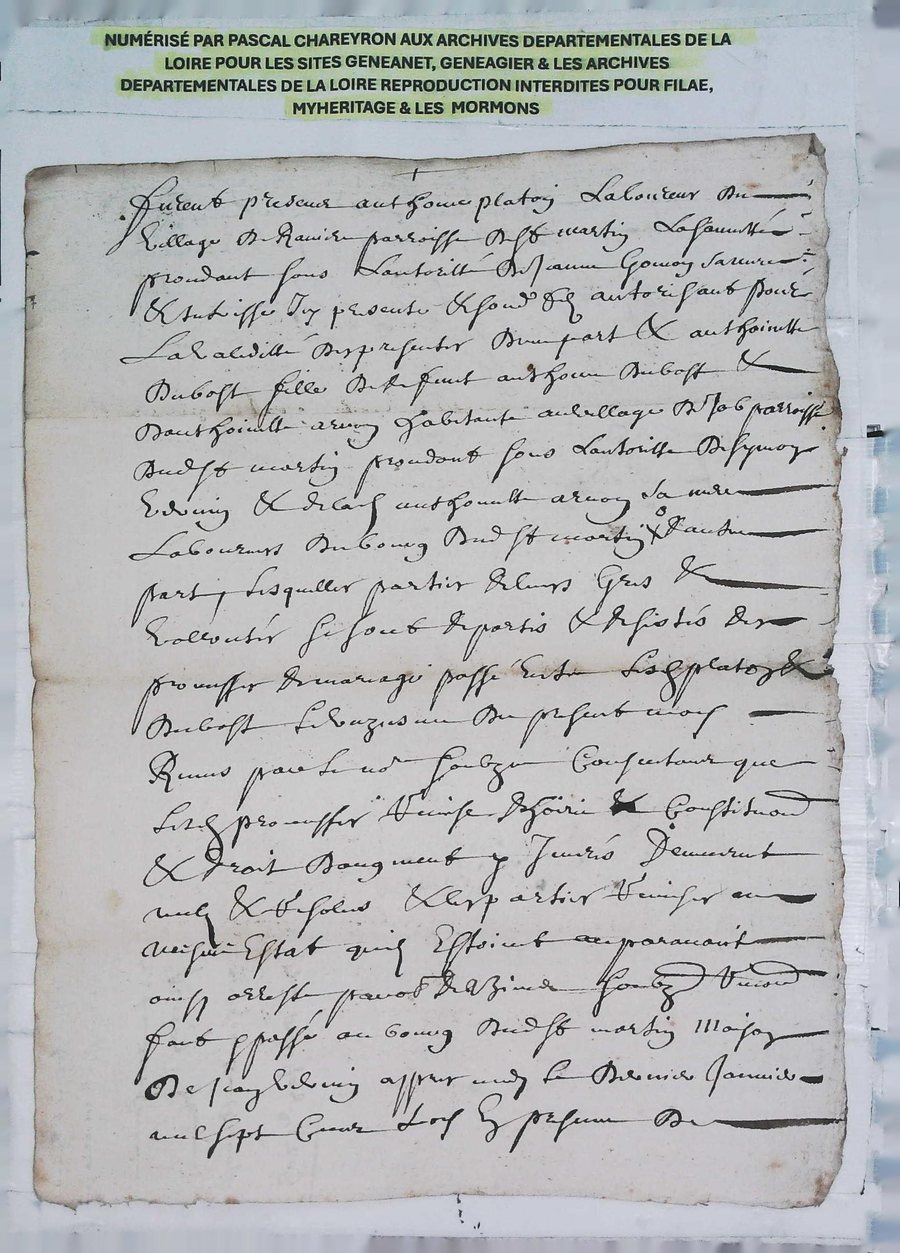 NUMÉRISÉ PAR PASCAL CHAREYRON AUX ARCHIVES DEPARTEMENTALES DE LA
LOIRE POUR LES SITES GENEANET, GENEAGIER & LES ARCHIVES
DEPARTEMENTALES DE LA LOIRE REPRODUCTION INTERDITES POUR FILAE,
MYHERITAGE & LES MORMONS
furent presens anthoine platon Laboureur du
village de parroisse de St martin Lasauvetté
procedant soubs Lautoritté de Jeanne sa mere
& tutrisse Icy presente & autorisant pour
La validitté des presentes Dune part & anthoinette
Dubost fille de deffunt anthoine Dubost &
Danthoinette habitante au village de parroisse
Dud St martin procedant soubs Lautoritté de
& de lad anthoinette sa mere
Laboureurs du bourg Dud St martin Dautre
part, Lesquelles parties de leurs gres &
vollontés se sont departis & desistés des
promesses de mariage passé entre Lesd platon &
Dubost Le du present mois
Receus par Le no soubzne Consentans que
Lesd promesses &
& droit Daugment y Inserés Demeurent
nuls & & les parties au
mesme Estat quils Estoient auparavant
ainsy arresté soubz
fait & passé au bourg Dud St martin Maison
De apres midy Le dernier Janvier
mil sept Cens En presence De